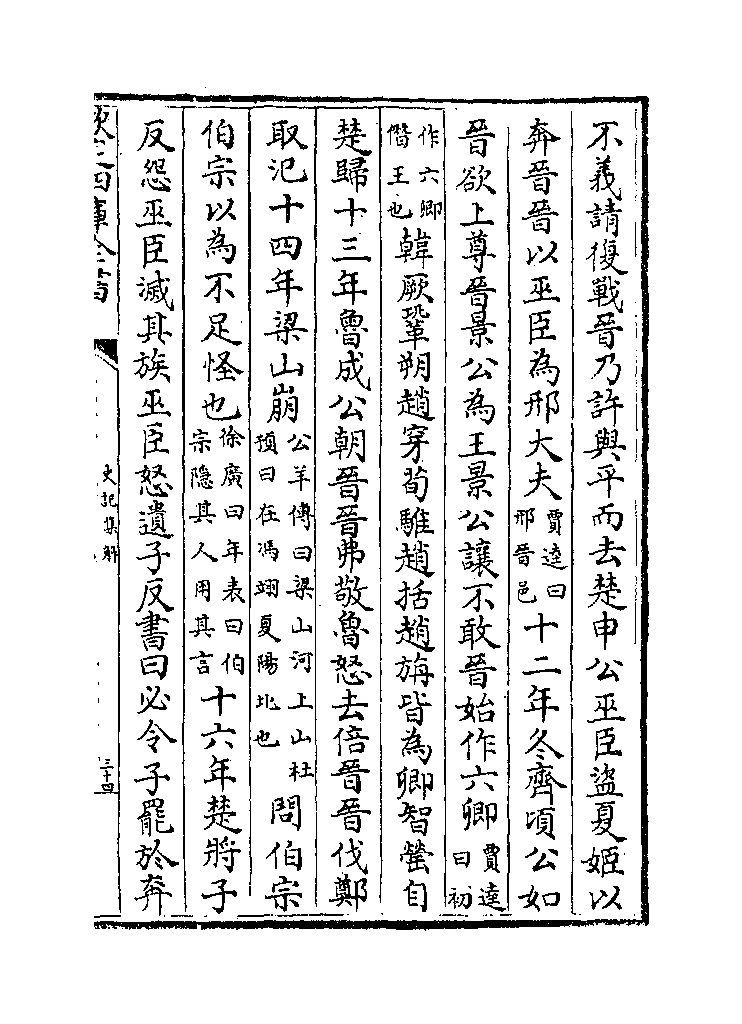 不義請復戰晉乃許與平而去楚申公巫臣盜夏姬以
奔晉晉以巫臣為邢大夫賈逵曰邢晉邑十二年冬齊頃公如
晉欲上尊晉景公為王景公讓不敢晉始作六卿賈逵曰初
作六卿僭王也韓厥鞏朔趙穿荀騅趙括趙旃皆為卿智罃自
楚歸十三年魯成公朝晉晉弗敬魯怒去倍晉晉伐鄭
取氾十四年梁山崩公羊傳曰梁山河上山杜預曰在馮翊夏陽北也問伯宗
伯宗以為不足怪也徐廣曰年表曰伯宗隱其人用其言十六年楚將子
反怨巫臣滅其族巫臣怒遺子反書曰必令子罷於奔
欽定四庫全書
史記集解
三十四